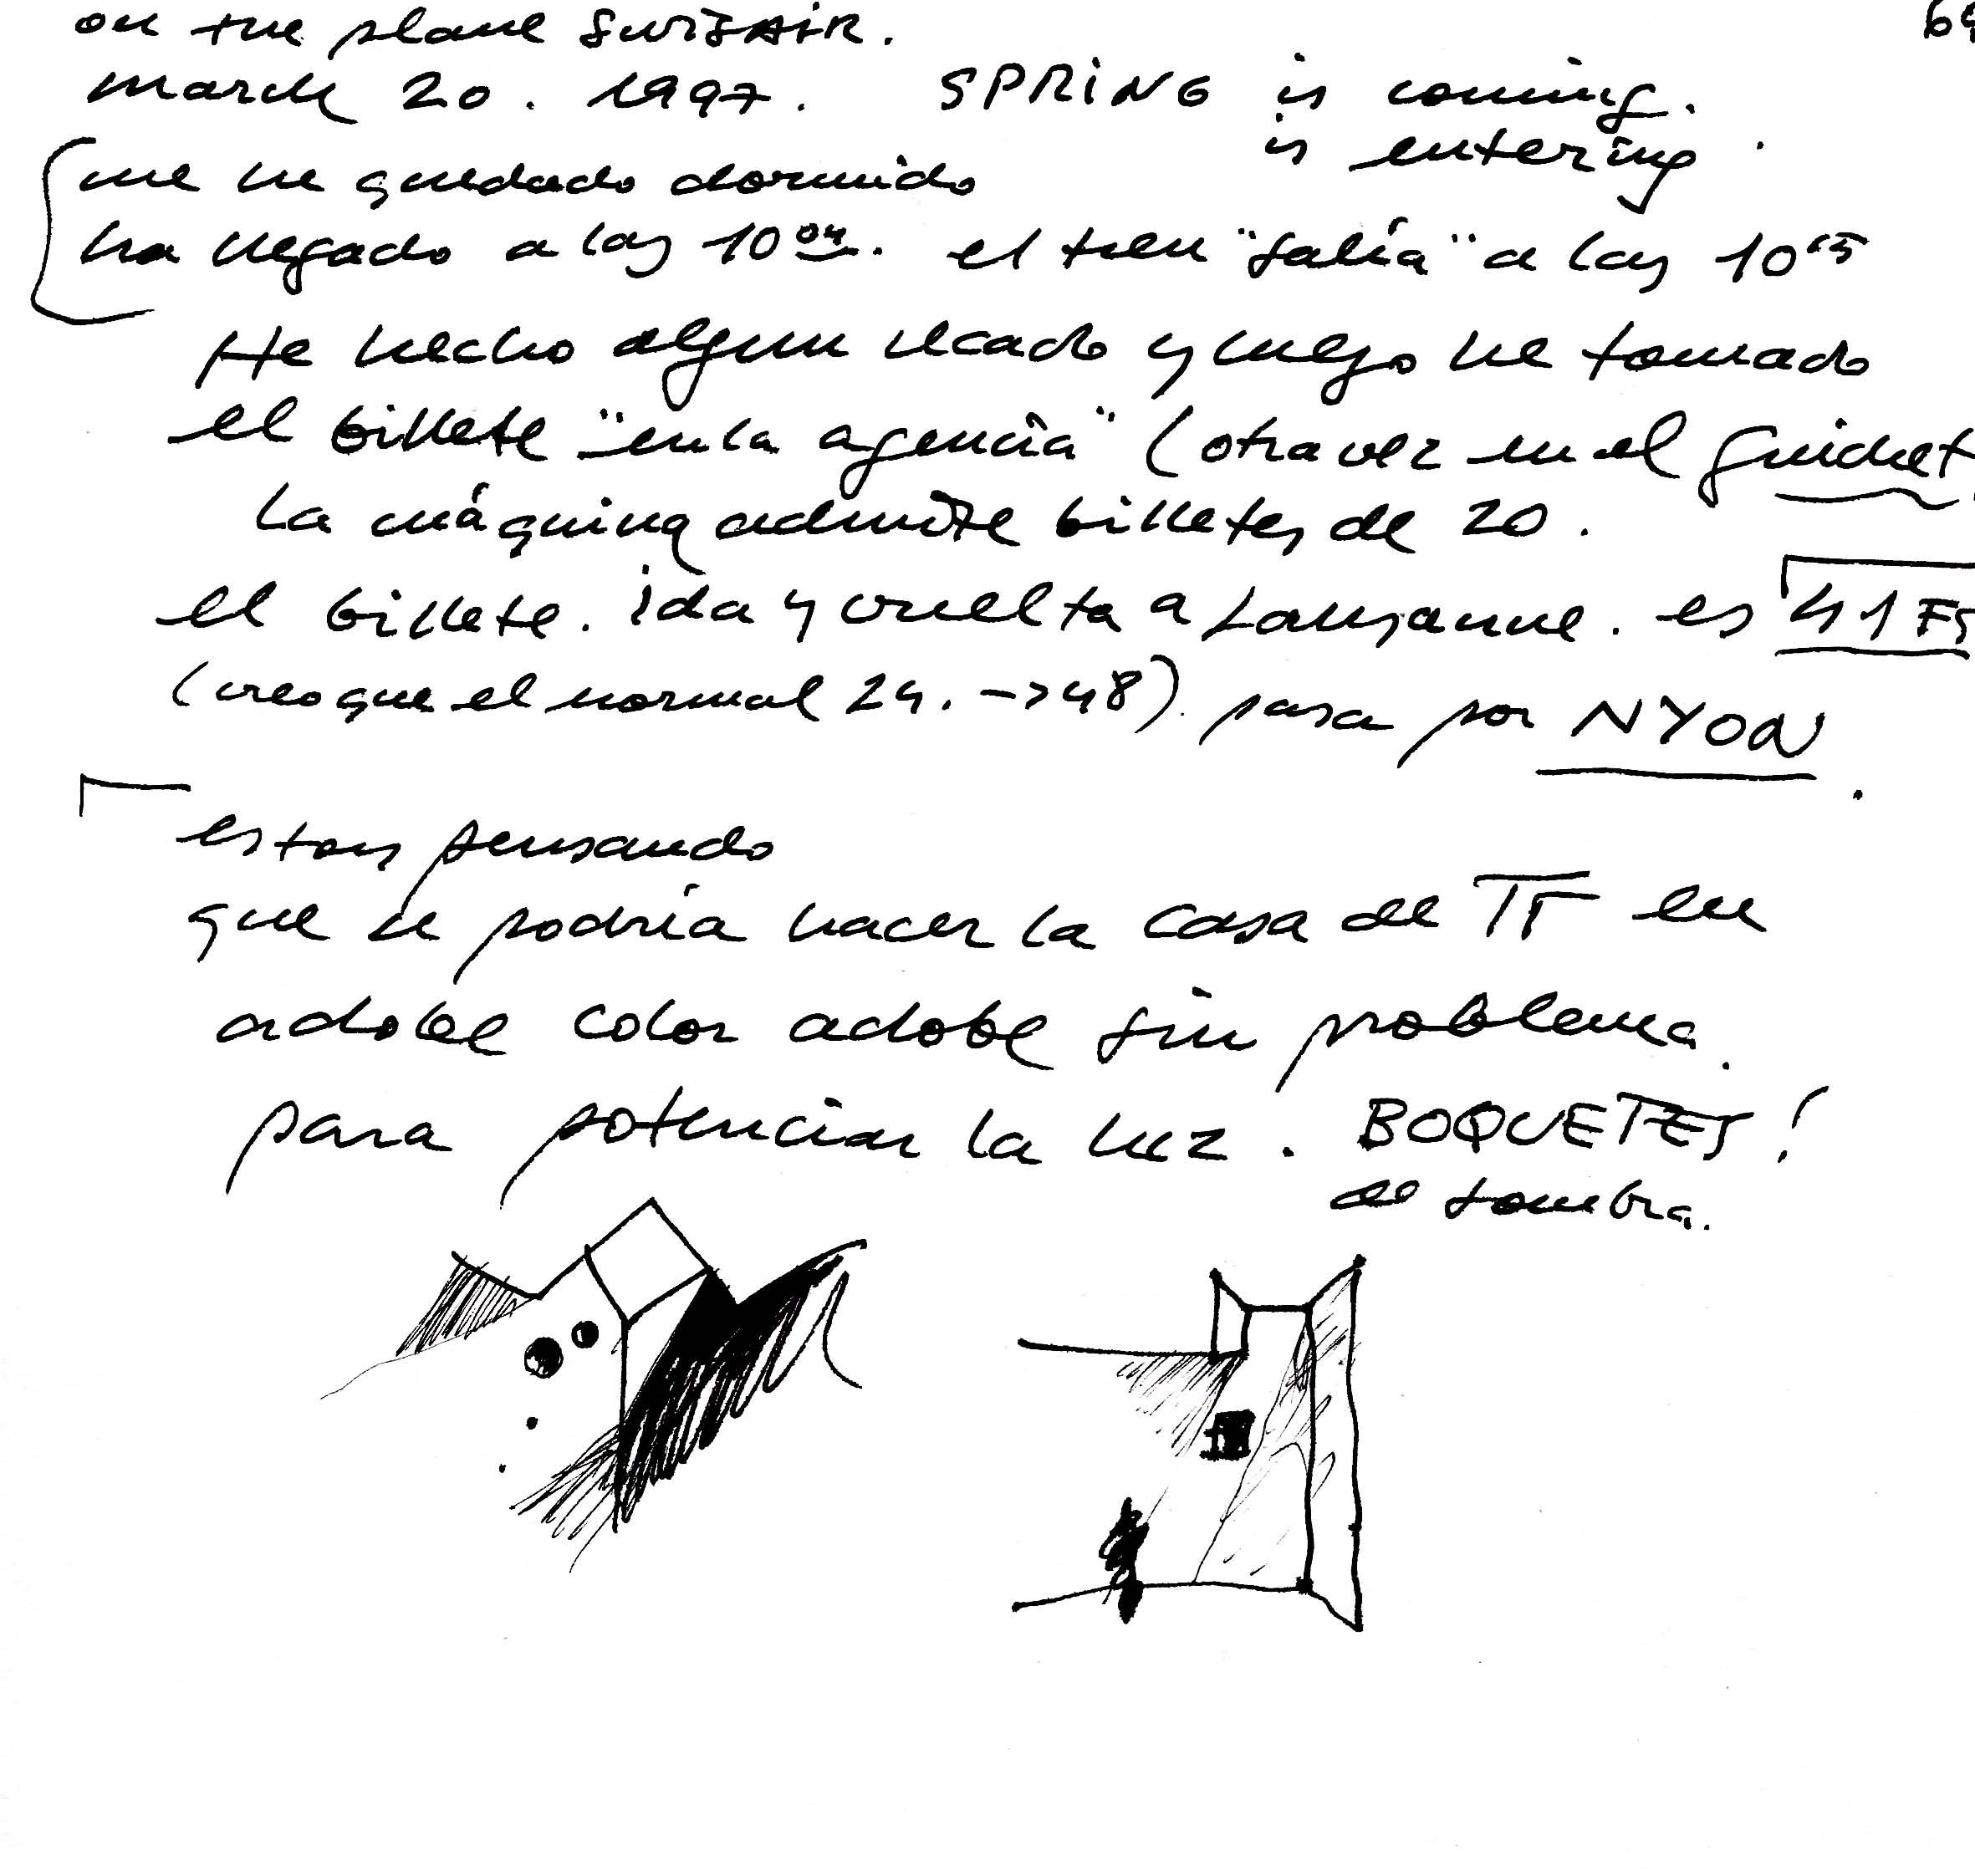 on the plane SWISSAIR. 64
march 20. 1997. SPRING is coming.
is entering.
me he quedado dormido
ha llegado a las 10 04. el tren "salía" a las 10 15
He hecho algun recado y luego he tomado
el billete "en la agencia" (otra vez en el guichet
La máquina admite billetes de 20.
el billete. ida y vuelta a Lausanne. es 41 FS
(creo que el normal 24. -> 48). pasa por NYON.
estoy pensando
que se podría hacer la casa de TT en
adobe color adobe sin problema.
para potenciar la luz. BOQUETES!
de sombra.